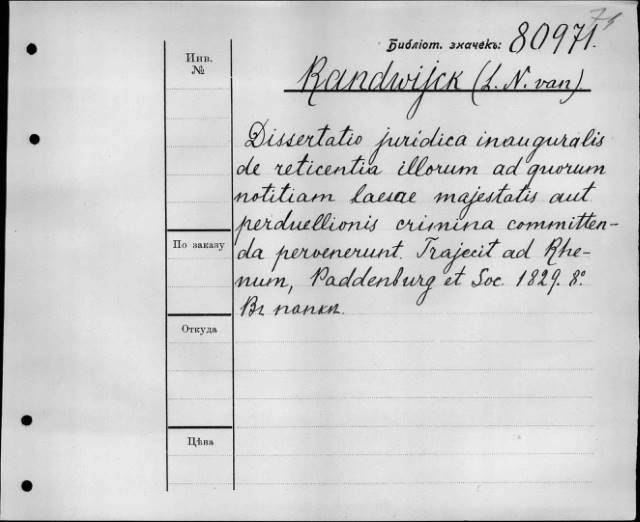 75
Библіот. значекъ: 80971.
Инв. №
Randwijck (L. N. van).
Dissertatio juridica inauguralis
de reticentia illorum ad quorum
notitiam laesae majestatis aut
perduellionis crimina committen-
da pervenerunt. Trajecit ad Rhe-
num, Paddenburg et Soc. 1829. 8º.
Въ папкѣ.
По заказу
Откуда
Цѣна